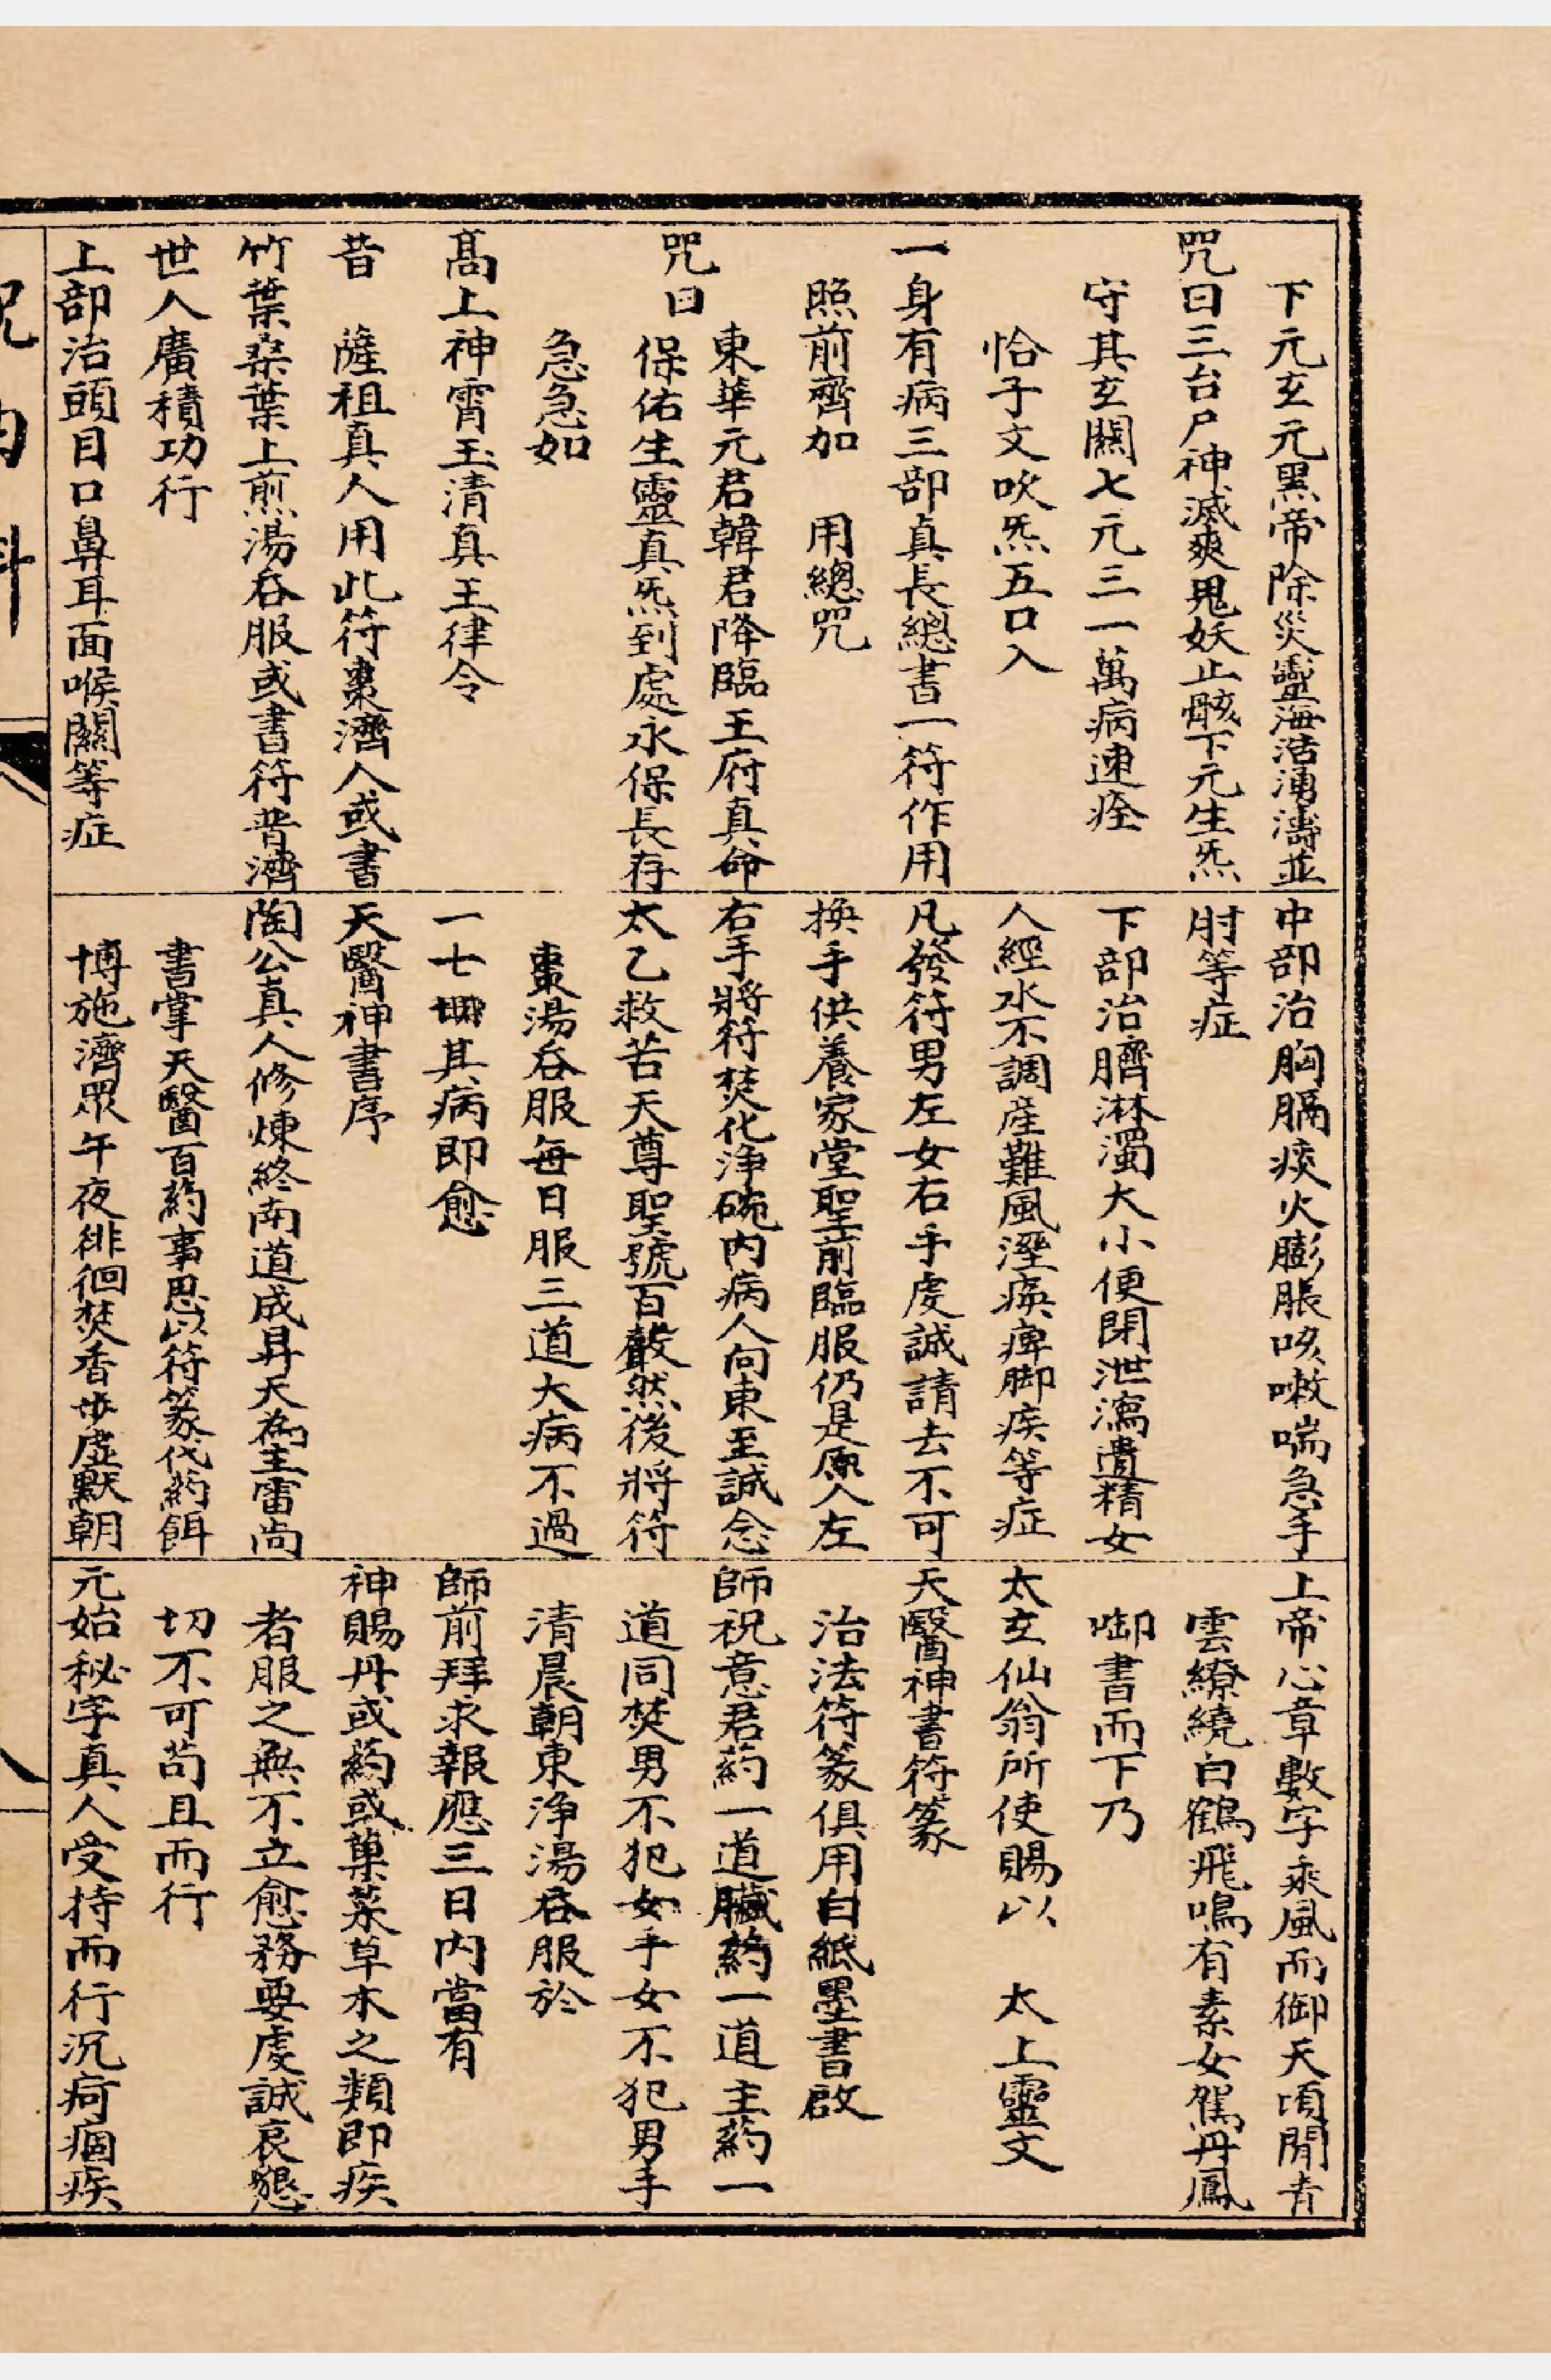 下元玄元黑帝除災靈海活湧濤並
咒曰三台尸神滅爽鬼妖止骸下元生炁
守其玄關七元三一萬病速痊
恰子文吹炁五口入
一身有病三部真長總書一符作用
照前齊加　用總咒
咒曰
東華元君韓君降臨王府真命
保佑生靈真炁到處永保長存
急急如
高上神霄玉清真王律令
昔　薩祖真人用此符棗濟人或書
竹葉桑葉上煎湯吞服或書符普濟
世人廣積功行
上部治頭目口鼻耳面喉關等症
中部治胸膈痰火膨脹咳嗽喘急手
肘等症
下部治臍淋濁大小便閉泄瀉遺精女
人經水不調產難風溼瘓痺脚疾等症
凡發符男左女右手虔誠請去不可
換手供養家堂聖前臨服仍是原人左
右手將符焚化淨碗內病人向東至誠念
太乙救苦天尊聖號百聲然後將符
棗湯吞服每日服三道大病不過
一七冊其病即愈
天醫神書序
陶公真人修煉終南道成昇天為主雷尚
書掌天醫百葯事思以符篆代葯餌
博施濟眾午夜徘徊焚香步虛默朝
上帝心章數字乘風而御天頃聞青
雲繚繞白鶴飛鳴有素女駕丹鳳
啣書而下乃
太玄仙翁所使賜以　太上靈文
天醫神書符篆
治法符篆俱用白紙墨書啟
師祝意君葯一道臟葯一道主葯一
道同焚男不犯女手女不犯男手
清晨朝東淨湯吞服於
師前拜求報應三日內當有
神賜丹或葯或菓菜草木之類即疾
者服之無不立愈務要虔誠哀懇
切不可苟且而行
元始秘字真人受持而行沉疴痼疾